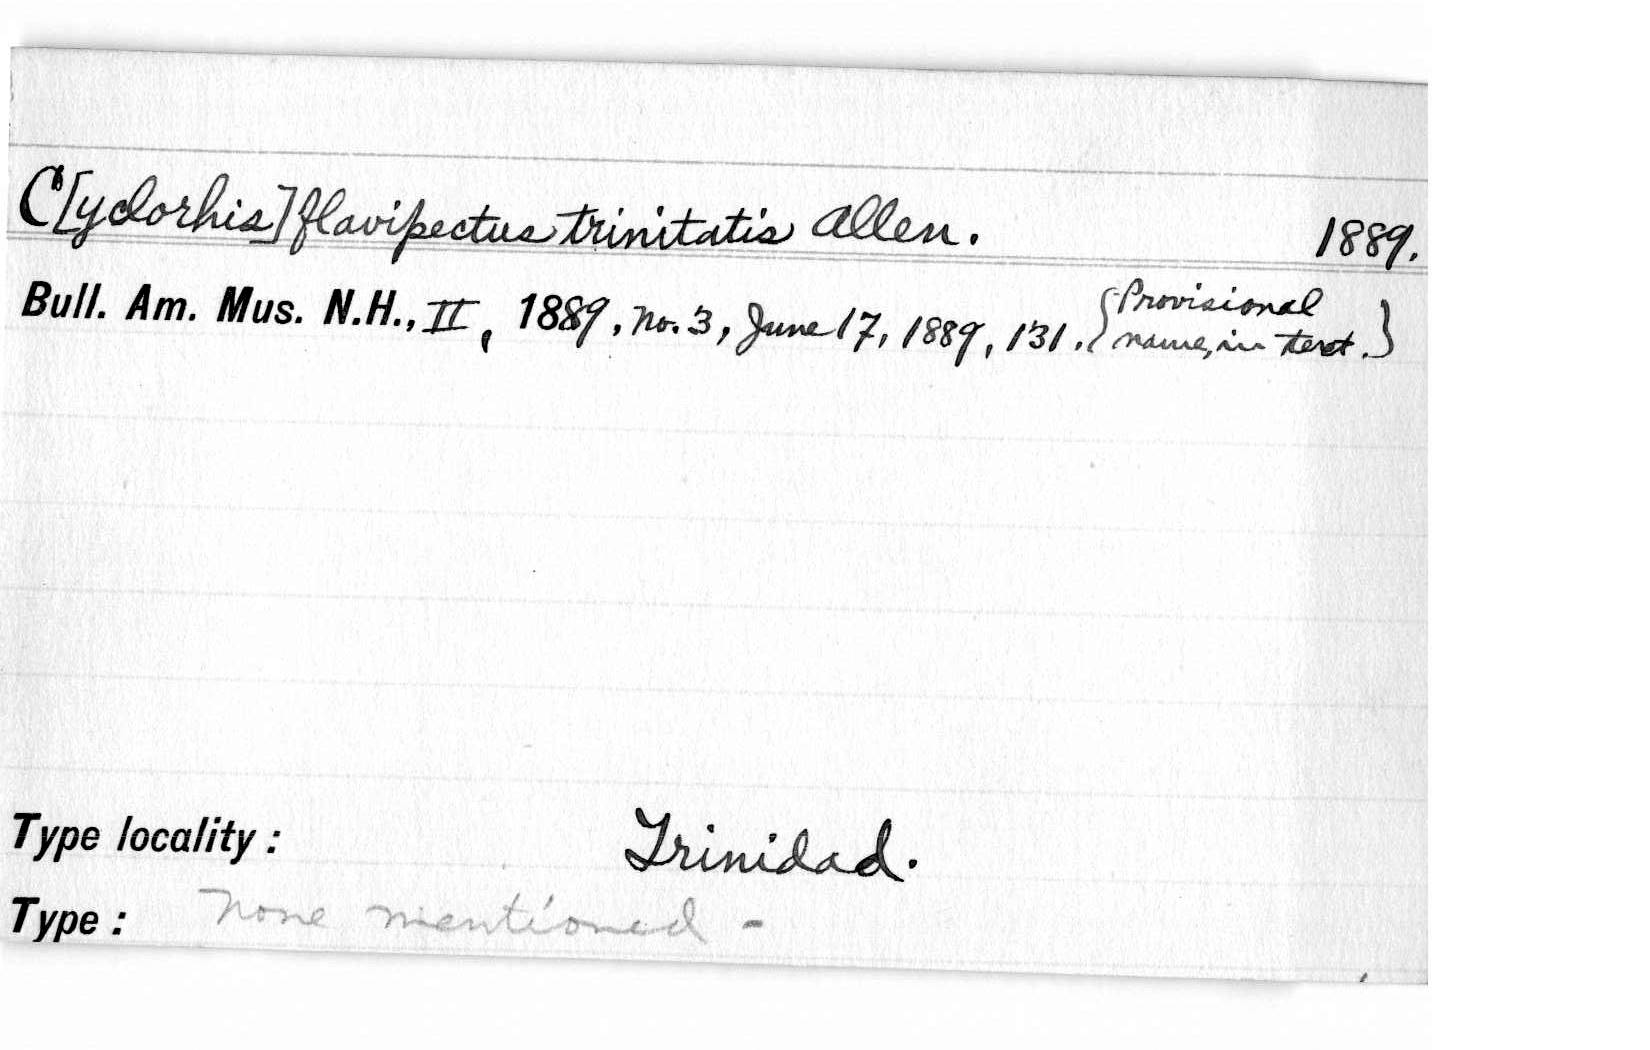 C[yclorhis] flavipectus trinitatis Allen. 1889.
Bull. Am. Mus. N.H., II, 1889, no. 3, June 17, 1889, 131. {Provisional name, in text.}
Type locality: Trinidad.
Type: none mentioned -